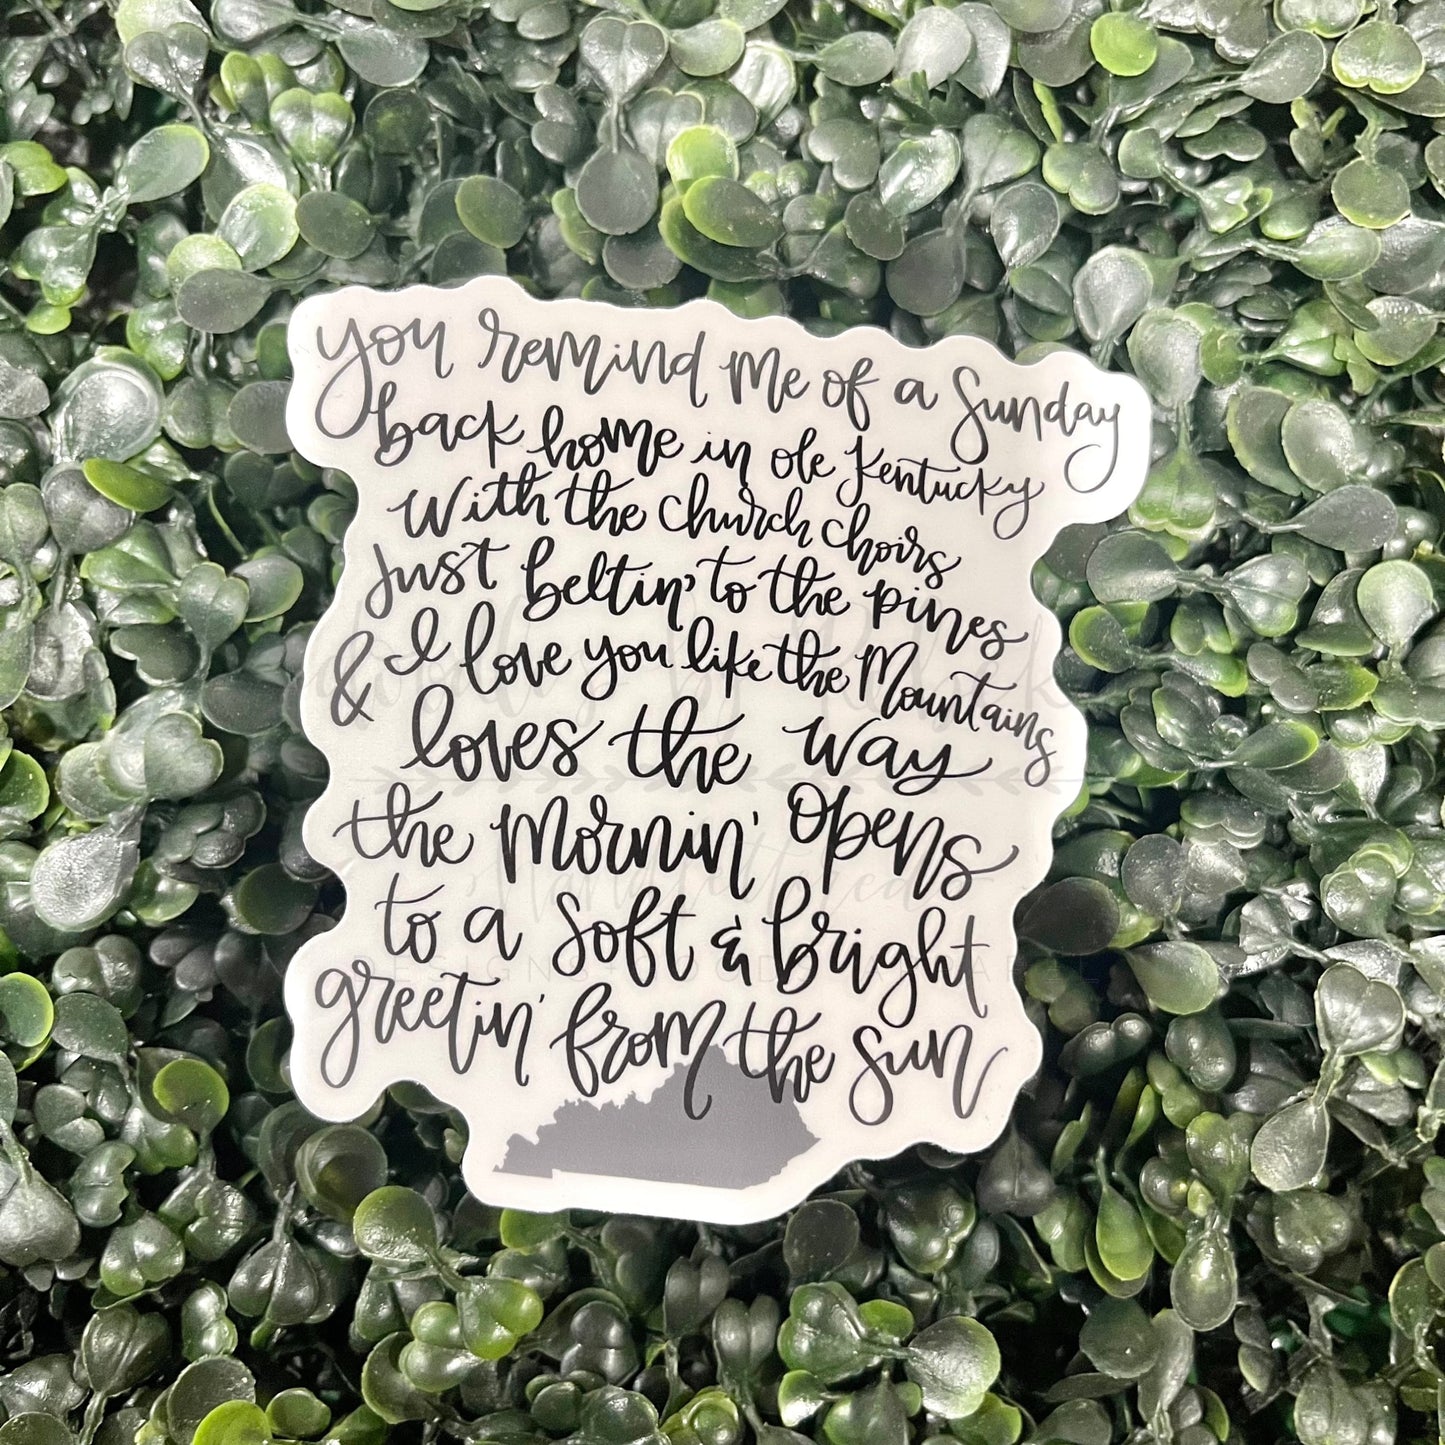 you remind me of a Sunday
back home in ole Kentucky
With the church choirs
Just beltin' to the pines
& I love you like the Mountains
loves the way
the mornin' opens
to a soft & bright
greetin' from the sun